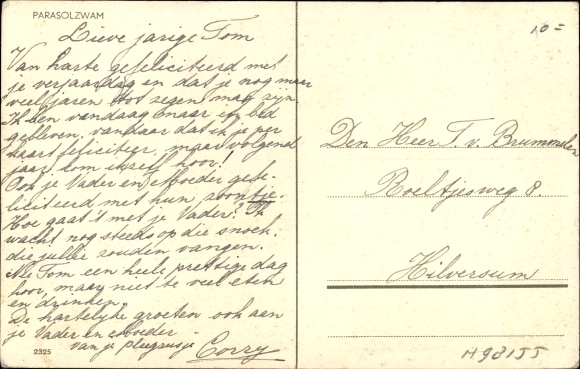 PARASOLZWAM
Lieve jarige Tom
Van harte gefeliciteerd met
je verjaardag en dat je nog maar
veel jaren tot zegen mag zijn.
Ik ben vandaag naar bed
gebleven, vandaar dat ik je per
kaart feliciteer, maar volgend
jaar kom ikzelf hoor!
Ook je Vader en Moeder gefe-
liciteerd met hun zoontje.
Hoe gaat 't met je Vader? Ik
wacht nog steeds op die snoek,
die jullie zouden vangen.
Tom een hele prettige dag
hoor, maar niet te veel eten
en drinken.
De hartelijke groeten ook aan
je Vader en Moeder
van je pleegzusje
Corry
2325
10=
Den Heer T. v.
Roeltjesweg 8.
Hilversum
H98155